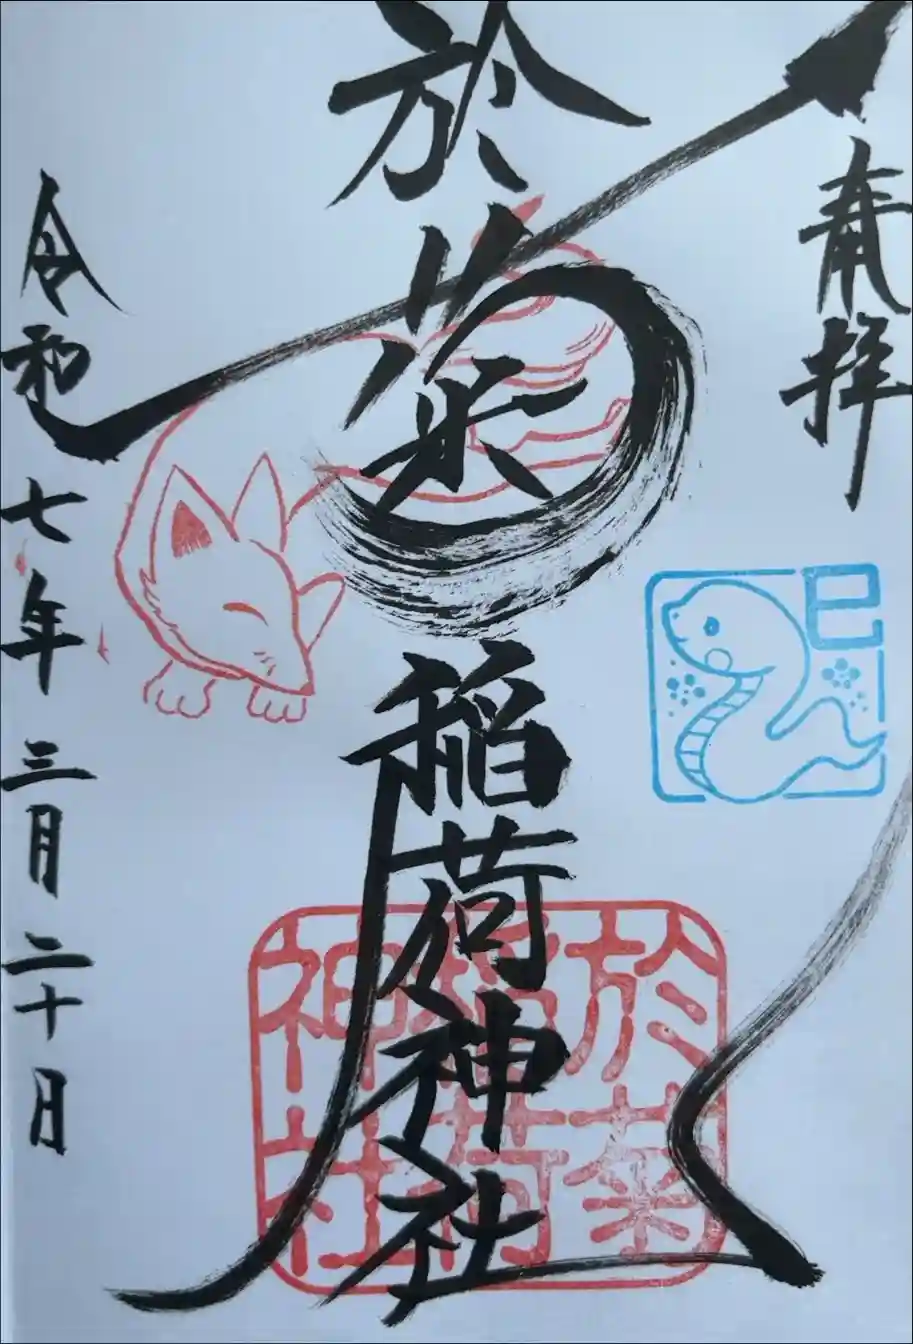 奉拝
巳
於菊稲荷神社
於菊
稲荷
神社
令和七年三月二十日